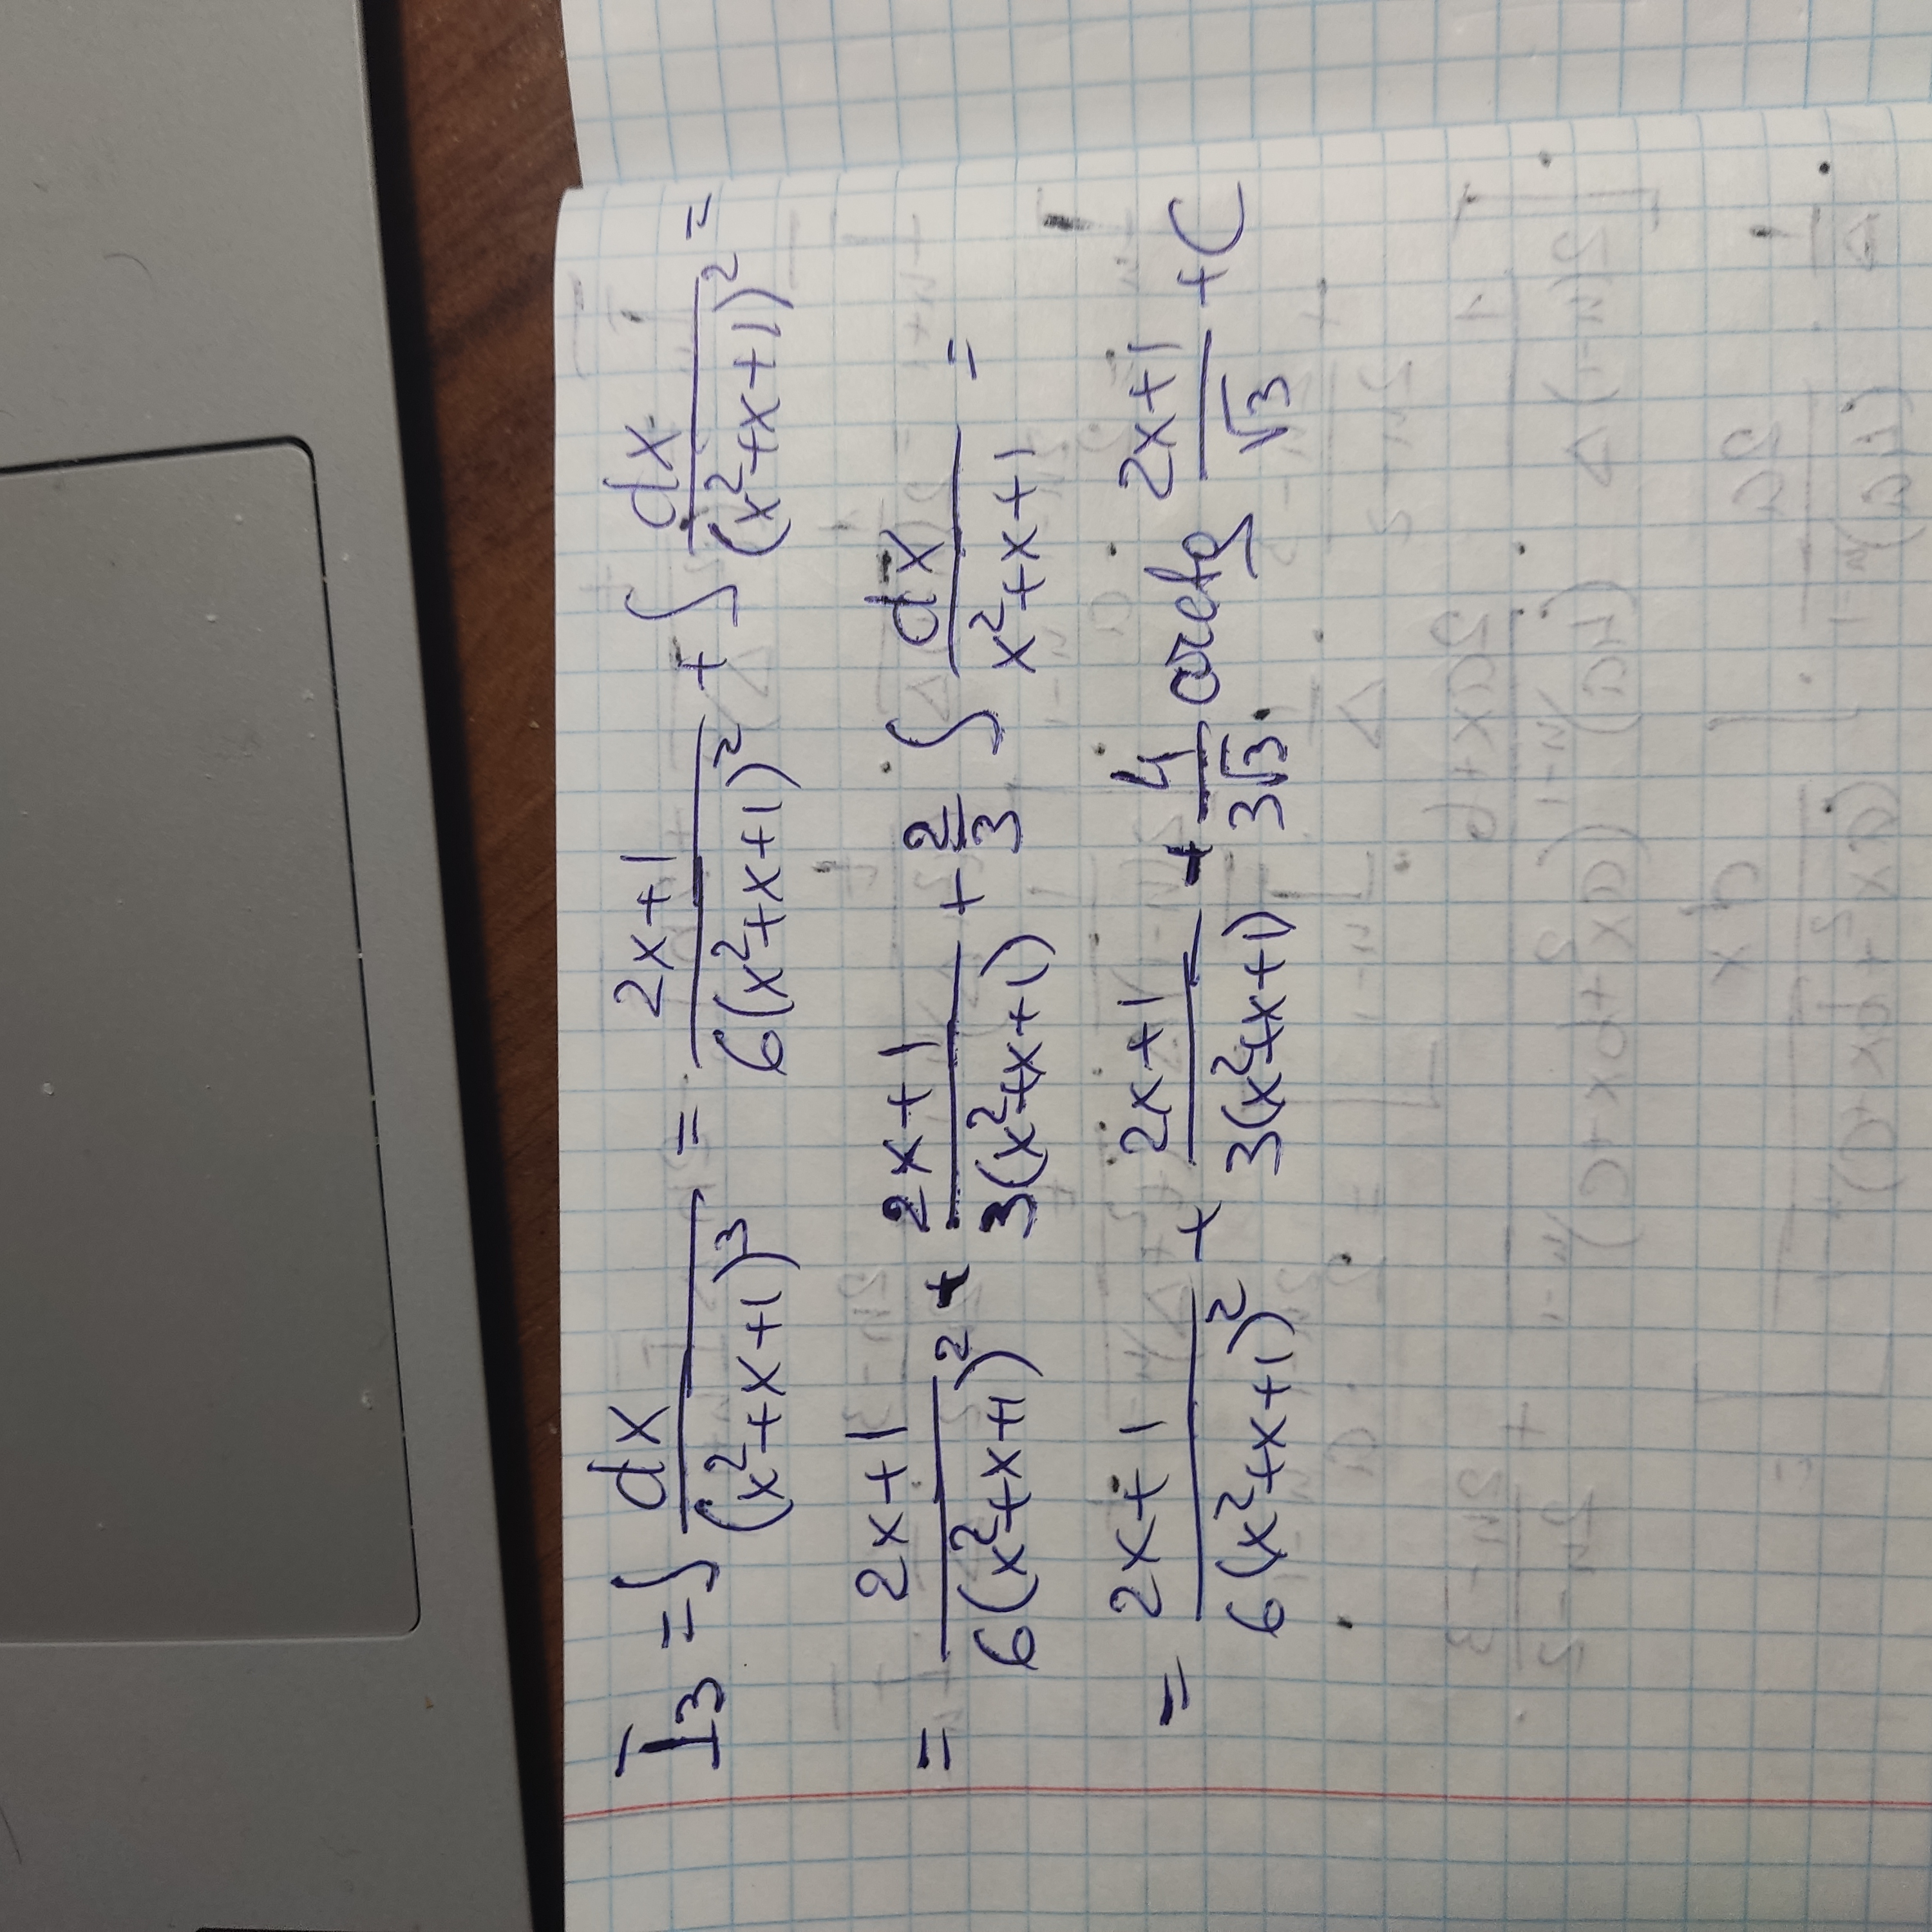 I₃ = ∫ dx/(x²+x+1)³ = (2x+1)/(6(x²+x+1)²) + ∫ dx/(x²+x+1)² =
= (2x+1)/(6(x²+x+1)²) + (2x+1)/(3(x²+x+1)) + 2/3 ∫ dx/(x²+x+1) =
= (2x+1)/(6(x²+x+1)²) + (2x+1)/(3(x²+x+1)) + 4/(3√3) arctg (2x+1)/√3 + C